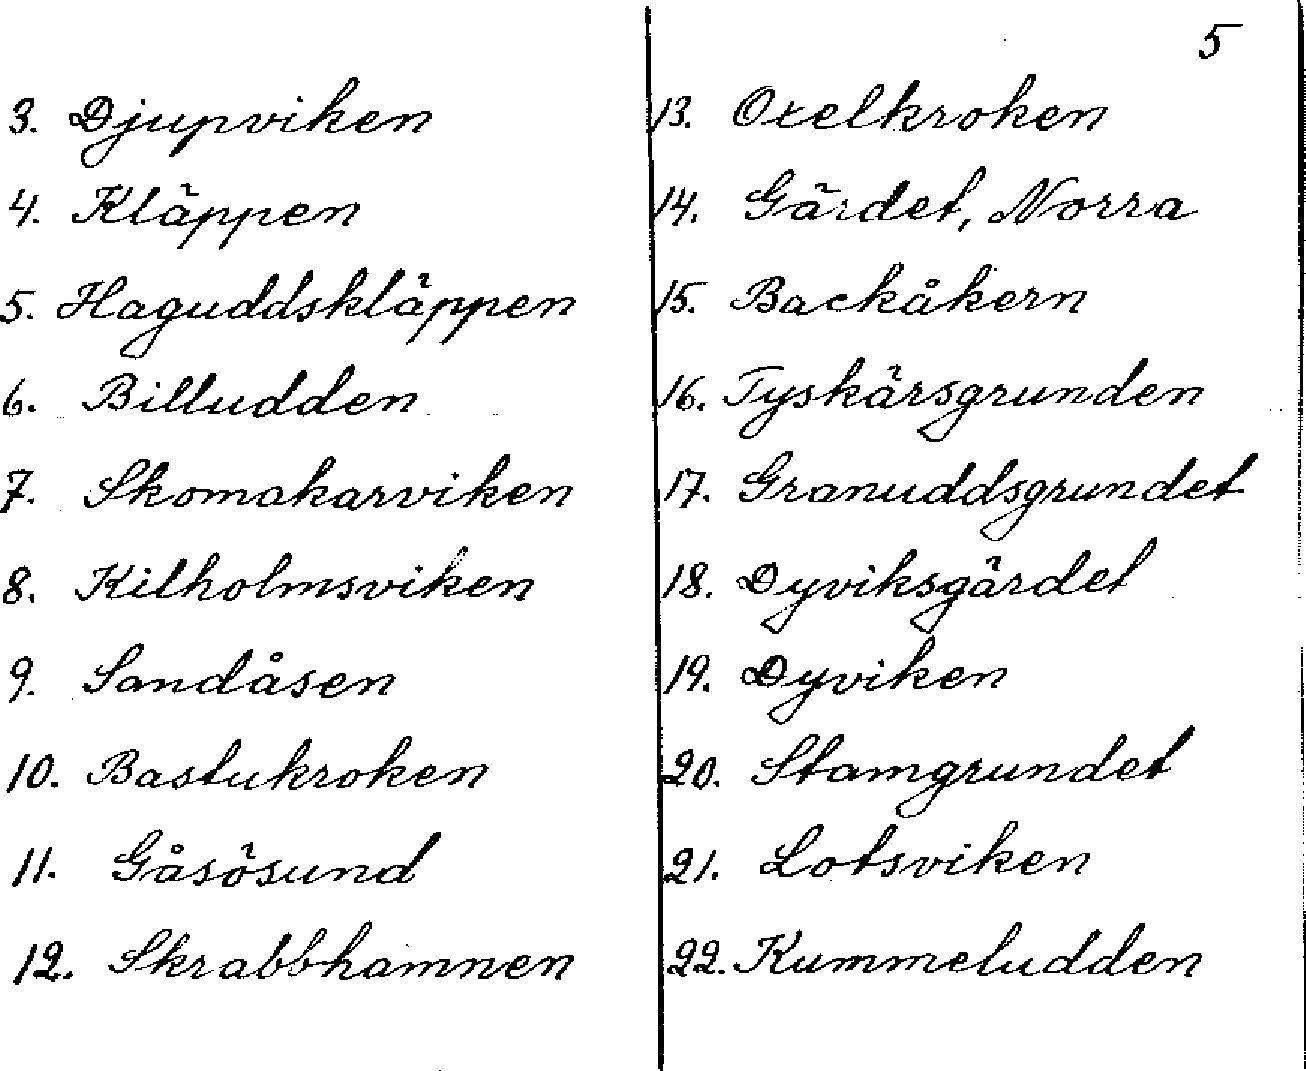 5
3. Djupviken
4. Kläppen
5. Haguddskläppen
6. Billudden
7. Skomakarviken
8. Kilholmsviken
9. Sandåsen
10. Bastukroken
11. Gåsösund
12. Skrabbhamnen
13. Oxelkroken
14. Gärdet, Norra
15. Backåkern
16. Tyskärsgrunden
17. Granuddsgrundet
18. Dyviksgärdet
19. Dyviken
20. Stamgrundet
21. Lotsviken
22. Kummeludden